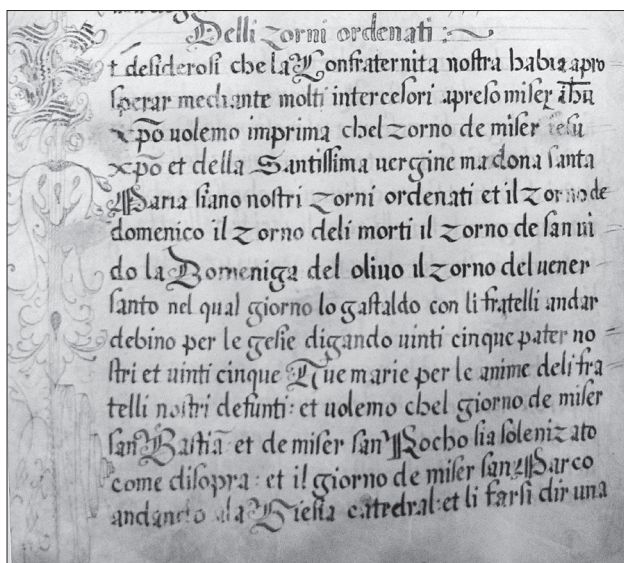 Delli zorni ordenati :~
t desiderosi che la Confraternita nostra habia apro
sperar mediante molti intercesori apreso miser ihu
xpo uolemo imprima chel zorno de miser iesu
xpo et della Santissima uergine madona santa
Maria siano nostri zorni ordenati et il zorno de
domenico il zorno deli morti il zorno de san ui
do la Domeniga del oliuo il zorno del uener
santo nel qual giorno lo gastaldo con li fratelli andar
debino per le gesie digando uinti cinque pater no
stri et uinti cinque Aue marie per le anime deli fra
telli nostri defunti: et uolemo chel giorno de miser
san Bastia et de miser san Rocho sia solenizato
come disopra: et il giorno de miser san Marco
andando ala Giesia catredal: et li farsi dir una